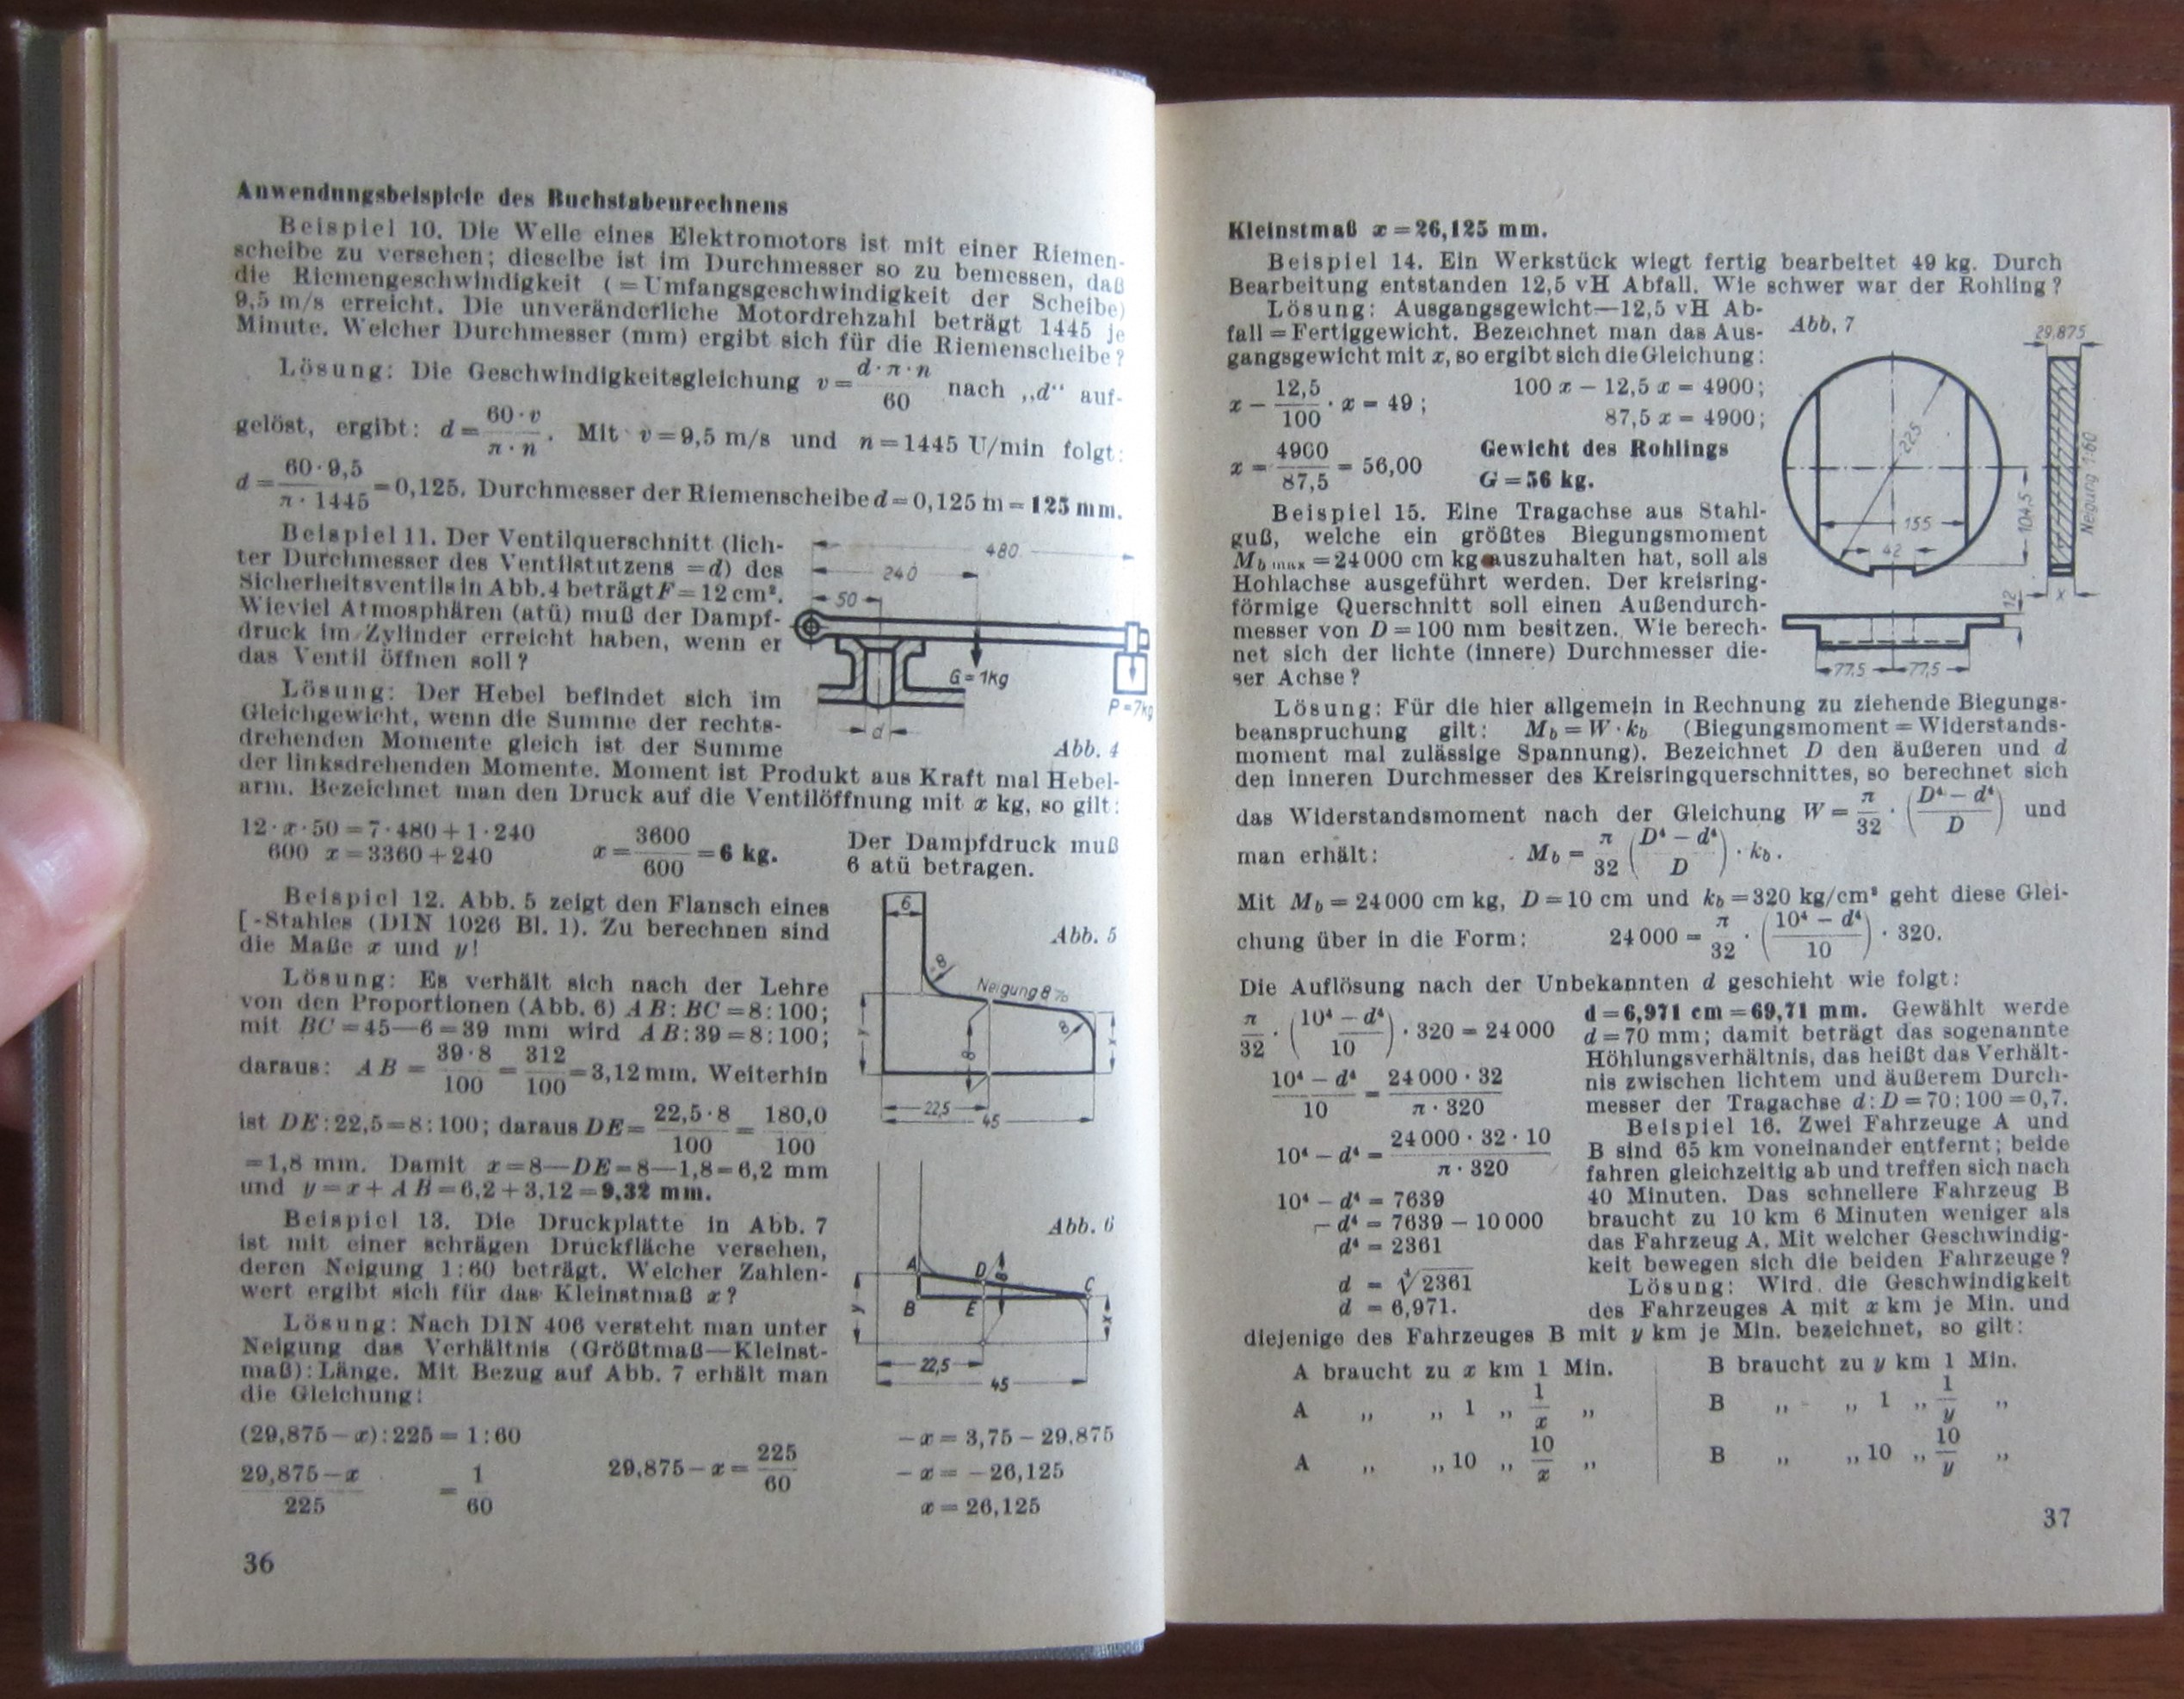 Anwendungsbeispiele des Buchstabenrechnens
Beispiel 10. Die Welle eines Elektromotors ist mit einer Riemen-
scheibe zu versehen; dieselbe ist im Durchmesser so zu bemessen, daß
die Riemengeschwindigkeit (=Umfangsgeschwindigkeit der Scheibe)
9,5 m/s erreicht. Die unveränderliche Motordrehzahl beträgt 1445 je
Minute. Welcher Durchmesser (mm) ergibt sich für die Riemenscheibe?
Lösung: Die Geschwindigkeitsgleichung v = d·π·n / 60 nach „d“ auf-
gelöst, ergibt: d = 60·v / π·n. Mit v=9,5 m/s und n=1445 U/min folgt:
d = 60·9,5 / π·1445 = 0,125. Durchmesser der Riemenscheibe d=0,125 m = 125 mm.
Beispiel 11. Der Ventilquerschnitt (lich-
ter Durchmesser des Ventilstutzens =d) des
Sicherheitsventils in Abb. 4 beträgt F=12 cm².
Wieviel Atmosphären (atü) muß der Dampf-
druck im Zylinder erreicht haben, wenn er
das Ventil öffnen soll?
480
240
50
G=1kg
P=7kg
d
Abb. 4
Lösung: Der Hebel befindet sich im
Gleichgewicht, wenn die Summe der rechts-
drehenden Momente gleich ist der Summe
der linksdrehenden Momente. Moment ist Produkt aus Kraft mal Hebel-
arm. Bezeichnet man den Druck auf die Ventilöffnung mit x kg, so gilt:
12·x·50=7·480+1·240
600 x=3360+240
x = 3600 / 600 = 6 kg.
Der Dampfdruck muß
6 atü betragen.
Beispiel 12. Abb. 5 zeigt den Flansch eines
[-Stahles (DIN 1026 Bl. 1). Zu berechnen sind
die Maße x und y!
6
Abb. 5
8
Neigung 8%
8
8
y
x
22,5
45
Lösung: Es verhält sich nach der Lehre
von den Proportionen (Abb. 6) AB:BC=8:100;
mit BC=45—6=39 mm wird AB:39=8:100;
daraus: AB = 39·8 / 100 = 312 / 100 = 3,12 mm. Weiterhin
ist DE:22,5=8:100; daraus DE = 22,5·8 / 100 = 180,0 / 100
=1,8 mm. Damit x=8—DE=8—1,8=6,2 mm
und y=x+AB=6,2+3,12=9,32 mm.
Abb. 6
A
D
8
C
B
E
y
x
22,5
45
Beispiel 13. Die Druckplatte in Abb. 7
ist mit einer schrägen Druckfläche versehen,
deren Neigung 1:60 beträgt. Welcher Zahlen-
wert ergibt sich für das Kleinstmaß x?
Lösung: Nach DIN 406 versteht man unter
Neigung das Verhältnis (Größtmaß—Kleinst-
maß):Länge. Mit Bezug auf Abb. 7 erhält man
die Gleichung:
(29,875−x):225=1:60
29,875−x / 225 = 1 / 60
29,875−x = 225 / 60
−x = 3,75−29,875
−x = −26,125
x = 26,125
36
Kleinstmaß x=26,125 mm.
Beispiel 14. Ein Werkstück wiegt fertig bearbeitet 49 kg. Durch
Bearbeitung entstanden 12,5 vH Abfall. Wie schwer war der Rohling?
Lösung: Ausgangsgewicht—12,5 vH Ab-
fall=Fertiggewicht. Bezeichnet man das Aus-
gangsgewicht mit x, so ergibt sich die Gleichung:
x − 12,5 / 100 · x = 49;
100 x − 12,5 x = 4900;
87,5 x = 4900;
x = 4900 / 87,5 = 56,00
Gewicht des Rohlings
G=56 kg.
Abb. 7
29,875
225
155
42
104,5
Neigung 1:60
12
x
77,5
77,5
Beispiel 15. Eine Tragachse aus Stahl-
guß, welche ein größtes Biegungsmoment
Mb max =24000 cm kg auszuhalten hat, soll als
Hohlachse ausgeführt werden. Der kreisring-
förmige Querschnitt soll einen Außendurch-
messer von D=100 mm besitzen. Wie berech-
net sich der lichte (innere) Durchmesser die-
ser Achse?
Lösung: Für die hier allgemein in Rechnung zu ziehende Biegungs-
beanspruchung gilt: Mb=W·kb (Biegungsmoment=Widerstands-
moment mal zulässige Spannung). Bezeichnet D den äußeren und d
den inneren Durchmesser des Kreisringquerschnittes, so berechnet sich
das Widerstandsmoment nach der Gleichung W = π / 32 · (D⁴ − d⁴ / D) und
man erhält: Mb = π / 32 (D⁴ − d⁴ / D) · kb.
Mit Mb=24000 cm kg, D=10 cm und kb=320 kg/cm² geht diese Glei-
chung über in die Form: 24000 = π / 32 · (10⁴ − d⁴ / 10) · 320.
Die Auflösung nach der Unbekannten d geschieht wie folgt:
π / 32 · (10⁴ − d⁴ / 10) · 320 = 24000
10⁴ − d⁴ / 10 = 24000 · 32 / π · 320
10⁴ − d⁴ = 24000 · 32 · 10 / π · 320
10⁴ − d⁴ = 7639
− d⁴ = 7639 − 10000
d⁴ = 2361
d = ⁴√2361
d = 6,971.
d=6,971 cm=69,71 mm. Gewählt werde
d=70 mm; damit beträgt das sogenannte
Höhlungsverhältnis, das heißt das Verhält-
nis zwischen lichtem und äußerem Durch-
messer der Tragachse d:D=70:100=0,7.
Beispiel 16. Zwei Fahrzeuge A und
B sind 65 km voneinander entfernt; beide
fahren gleichzeitig ab und treffen sich nach
40 Minuten. Das schnellere Fahrzeug B
braucht zu 10 km 6 Minuten weniger als
das Fahrzeug A. Mit welcher Geschwindig-
keit bewegen sich die beiden Fahrzeuge?
Lösung: Wird die Geschwindigkeit
des Fahrzeuges A mit x km je Min. und
diejenige des Fahrzeuges B mit y km je Min. bezeichnet, so gilt:
A braucht zu x km 1 Min.
A „ „ 1 „ 1 / x „
A „ „ 10 „ 10 / x „
B braucht zu y km 1 Min.
B „ „ 1 „ 1 / y „
B „ „ 10 „ 10 / y „
37